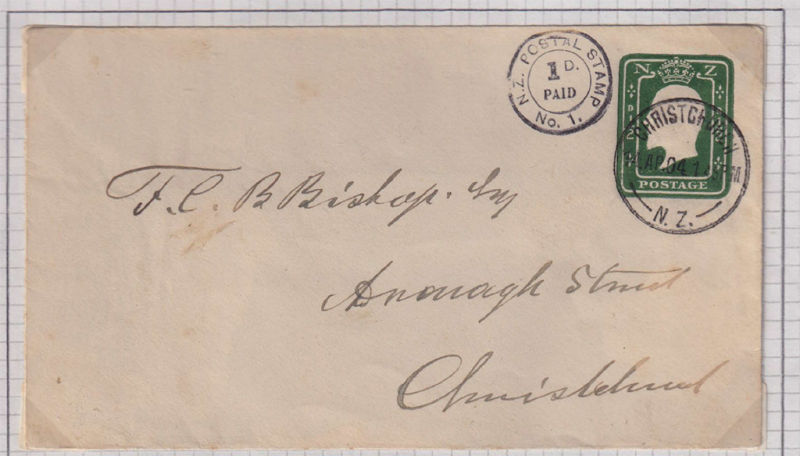 N.Z. POSTAL STAMP
1D.
PAID
No. 1.
N Z
POSTAGE
CHRISTCHURCH
AP 04
N.Z.
F. C. B Bishop. Esq
Armagh Street
Christchurch